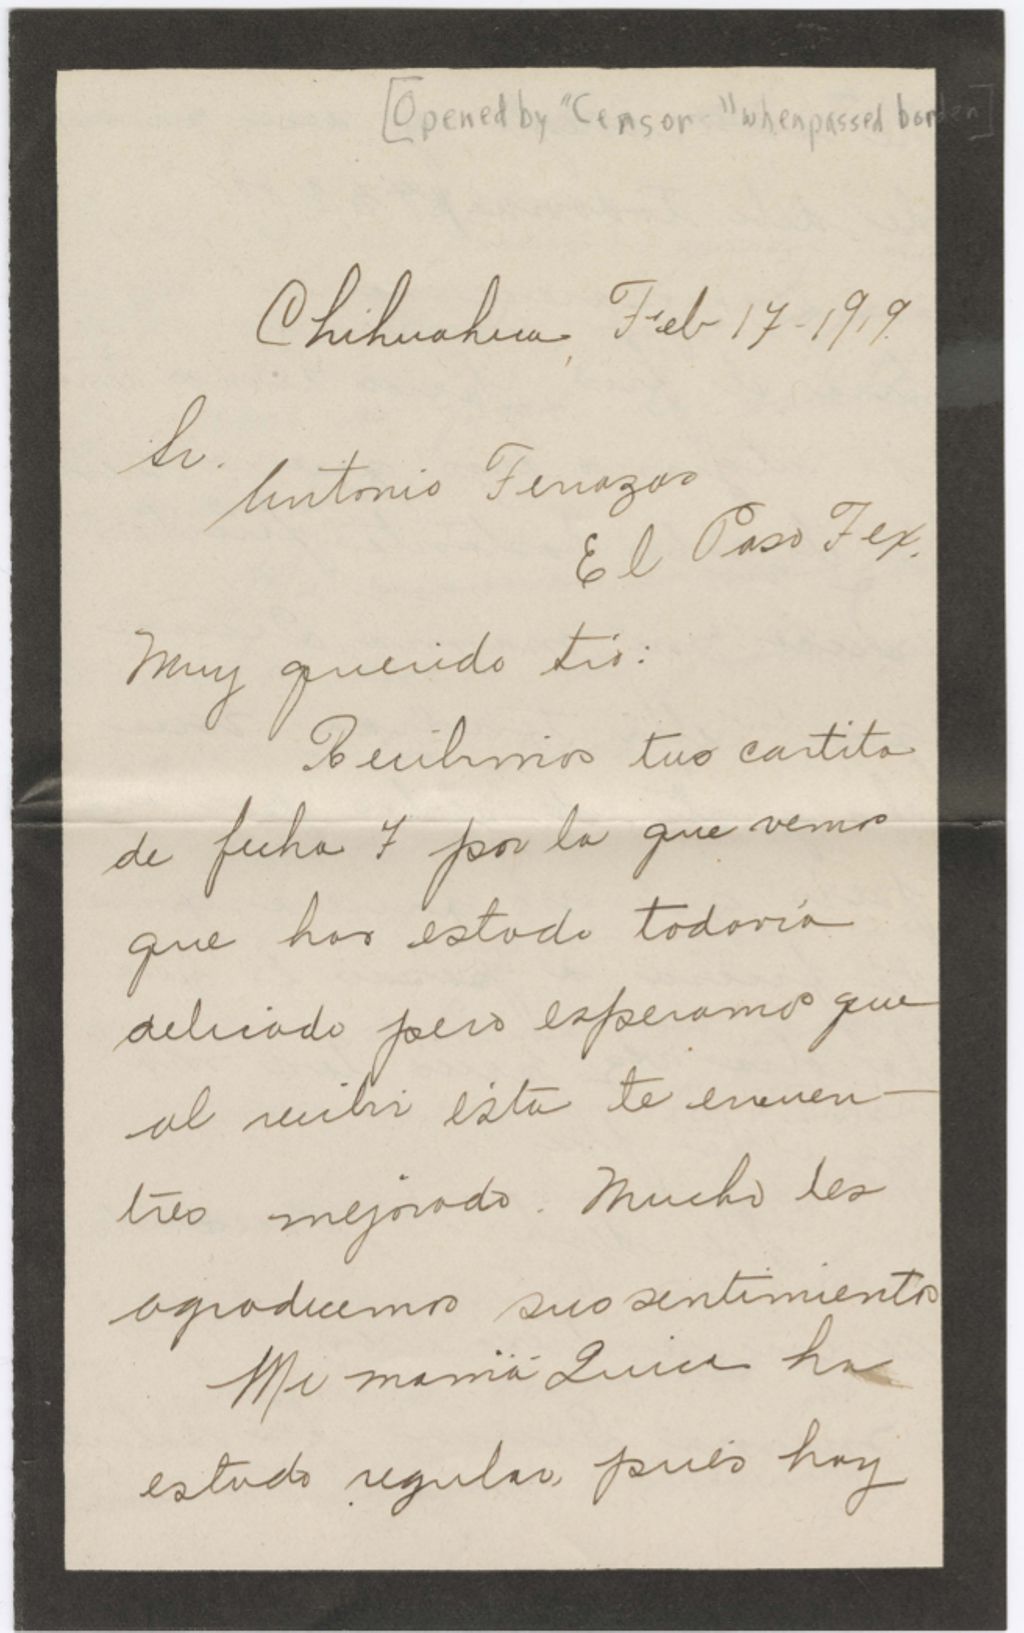 [Opened by "Censor" when passed border]
Chihuahua, Feb 17-1919.
Sr.
Antonio Terrazas
El Paso Tex.
Muy querido tio:
Recibimos tus cartita
de fecha 7 por la que vemos
que has estado todavía
delicado pero esperamos que
al recibir ésta te encuen-
tres mejorado. Mucho les
agradecemos sus sentimientos
Mi mamá Quica ha
estado regular, pues hay